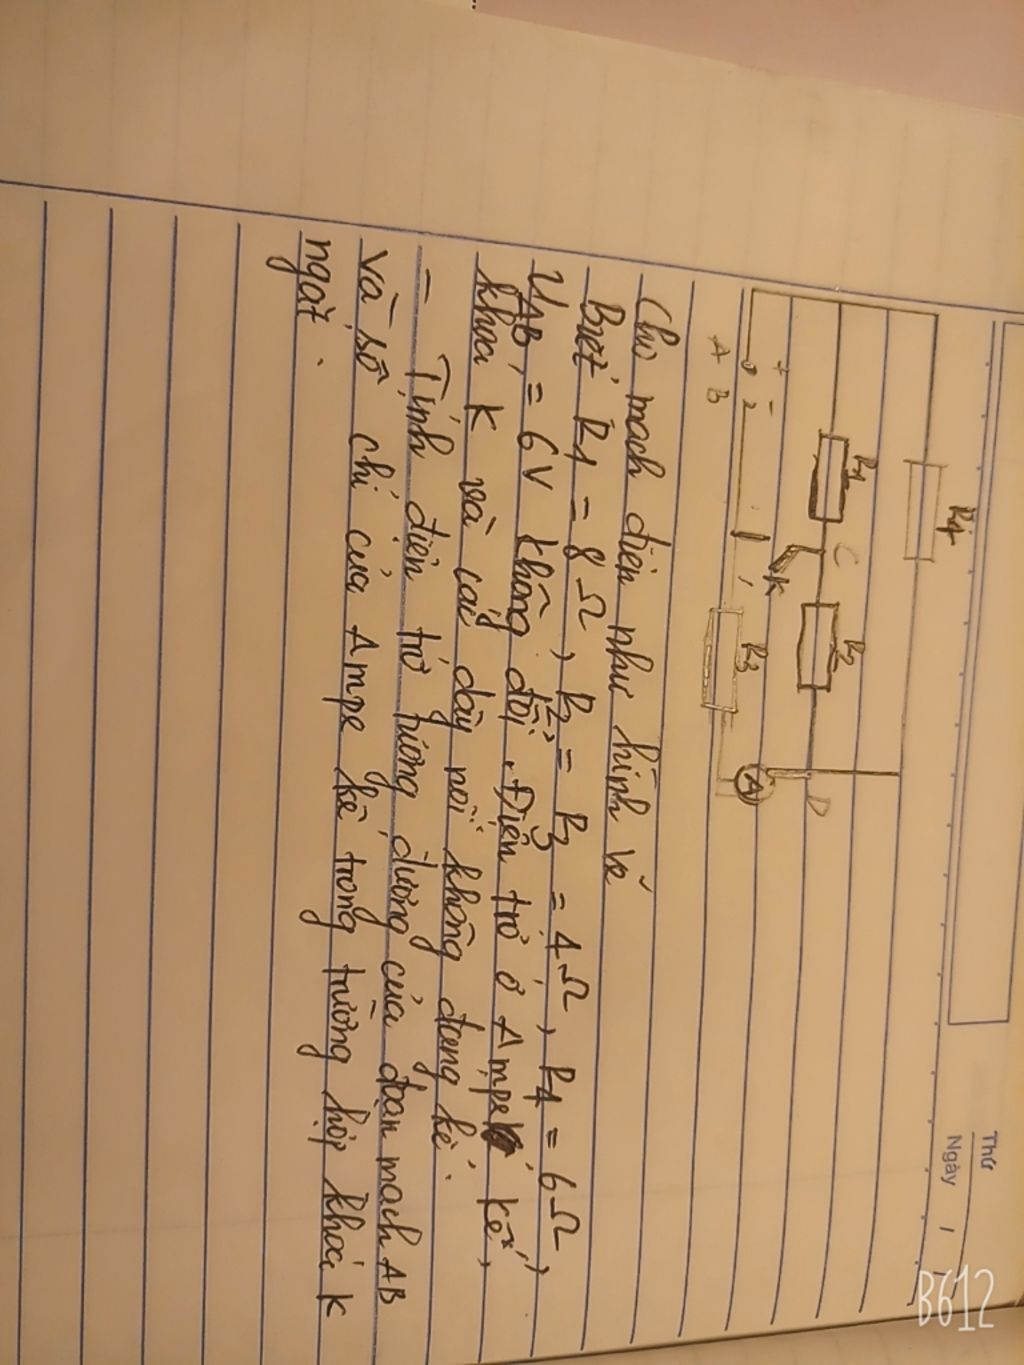 Thứ
Ngày / /
R4
R1
C
R2
K
D
+ -
R3
A
A B
Cho mạch điện như hình vẽ
Biết R1 = 8Ω, R2 = R3 = 4Ω, R4 = 6Ω,
UAB = 6V không đổi. Điện trở ở Ampe kế,
khóa K và các dây nối không đáng kể.
- Tính điện trở tương đương của đoạn mạch AB
và số chỉ của Ampe kế trong trường hợp khóa K
ngắt.
B612